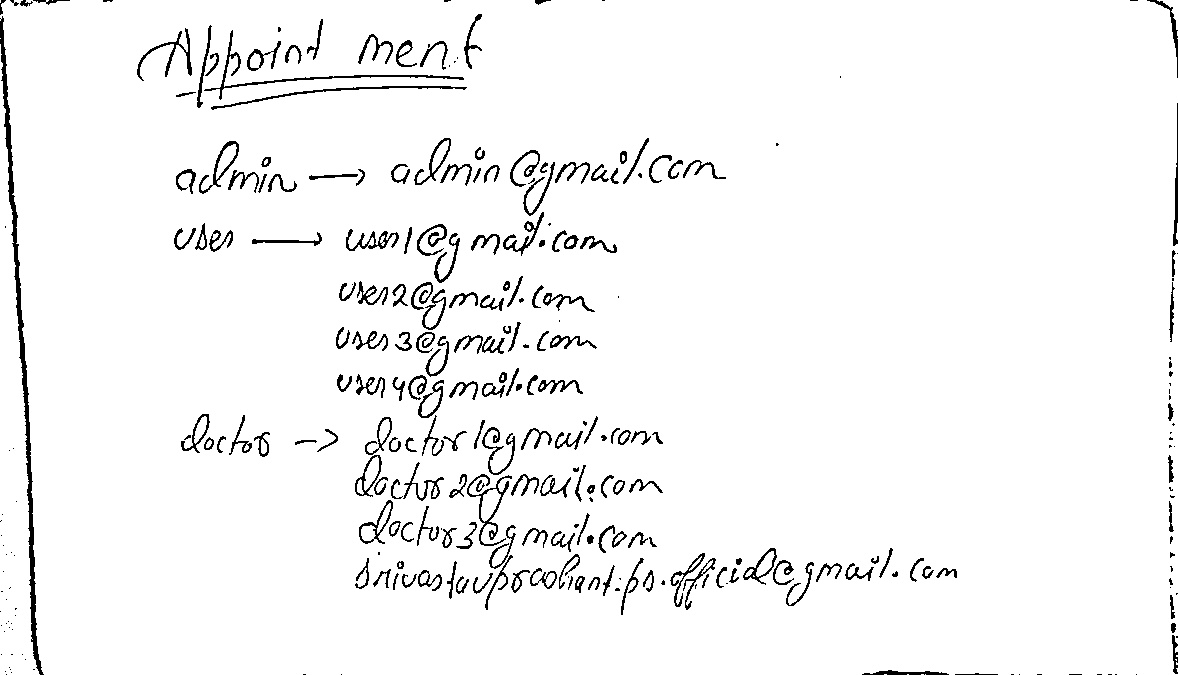 Appointment
admin → admin@gmail.com
user → user1@gmail.com
user2@gmail.com
user3@gmail.com
user4@gmail.com
doctor -> doctor1@gmail.com
doctor2@gmail.com
doctor3@gmail.com
srivastavprashant.ps.official@gmail.com